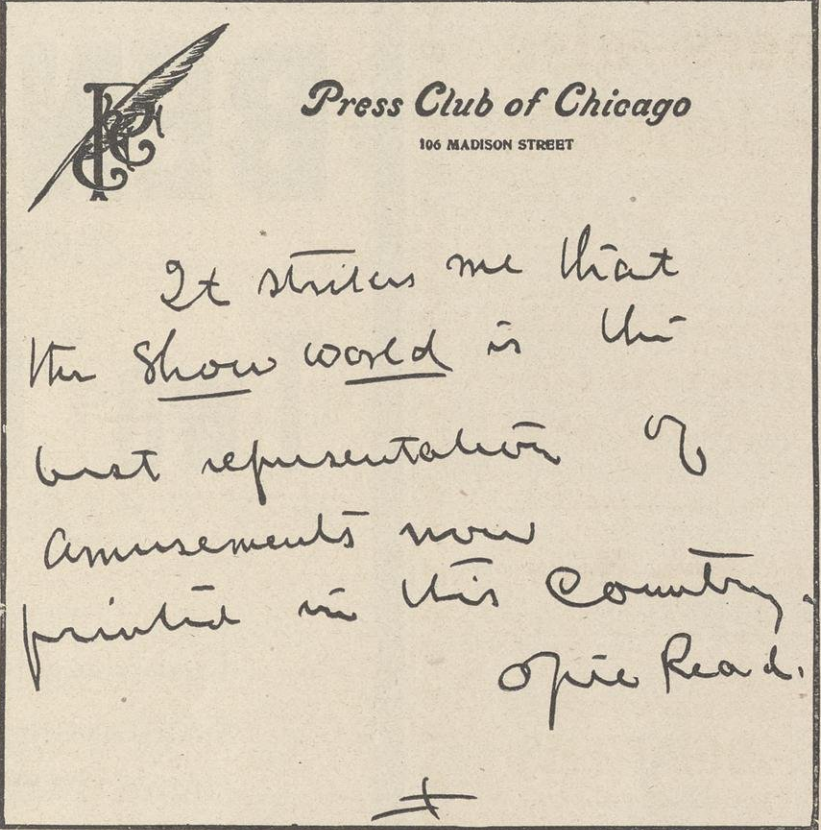 Press Club of Chicago
106 MADISON STREET
It strikes me that
the Show World is the
best representation of
amusements now
printed in this Country.
Opie Read.